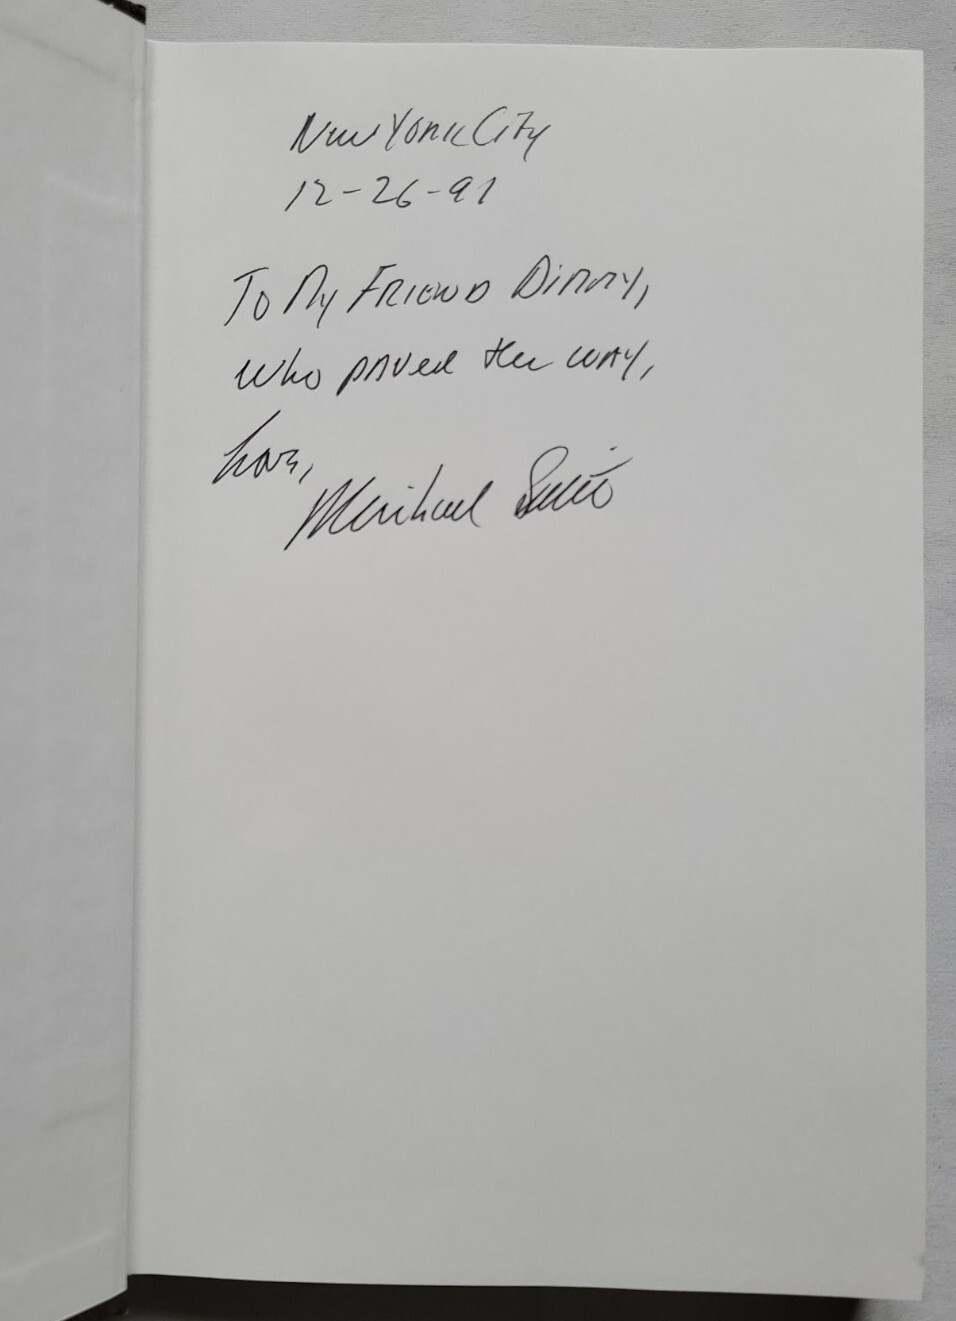 New York City
12-26-91
To My Friend Dinny,
who paved the way,
Love,
Michael